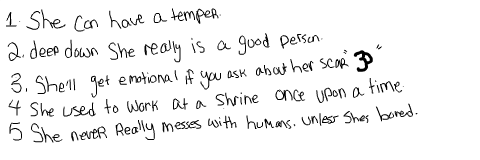 1. She can have a temper.
2. deep down She really is a good person.
3. She'll get emotional if you ask about her scar "ॐ"
4 She used to work at a Shrine once upon a time.
5 She never Really messes with humans. unless Shes bored.